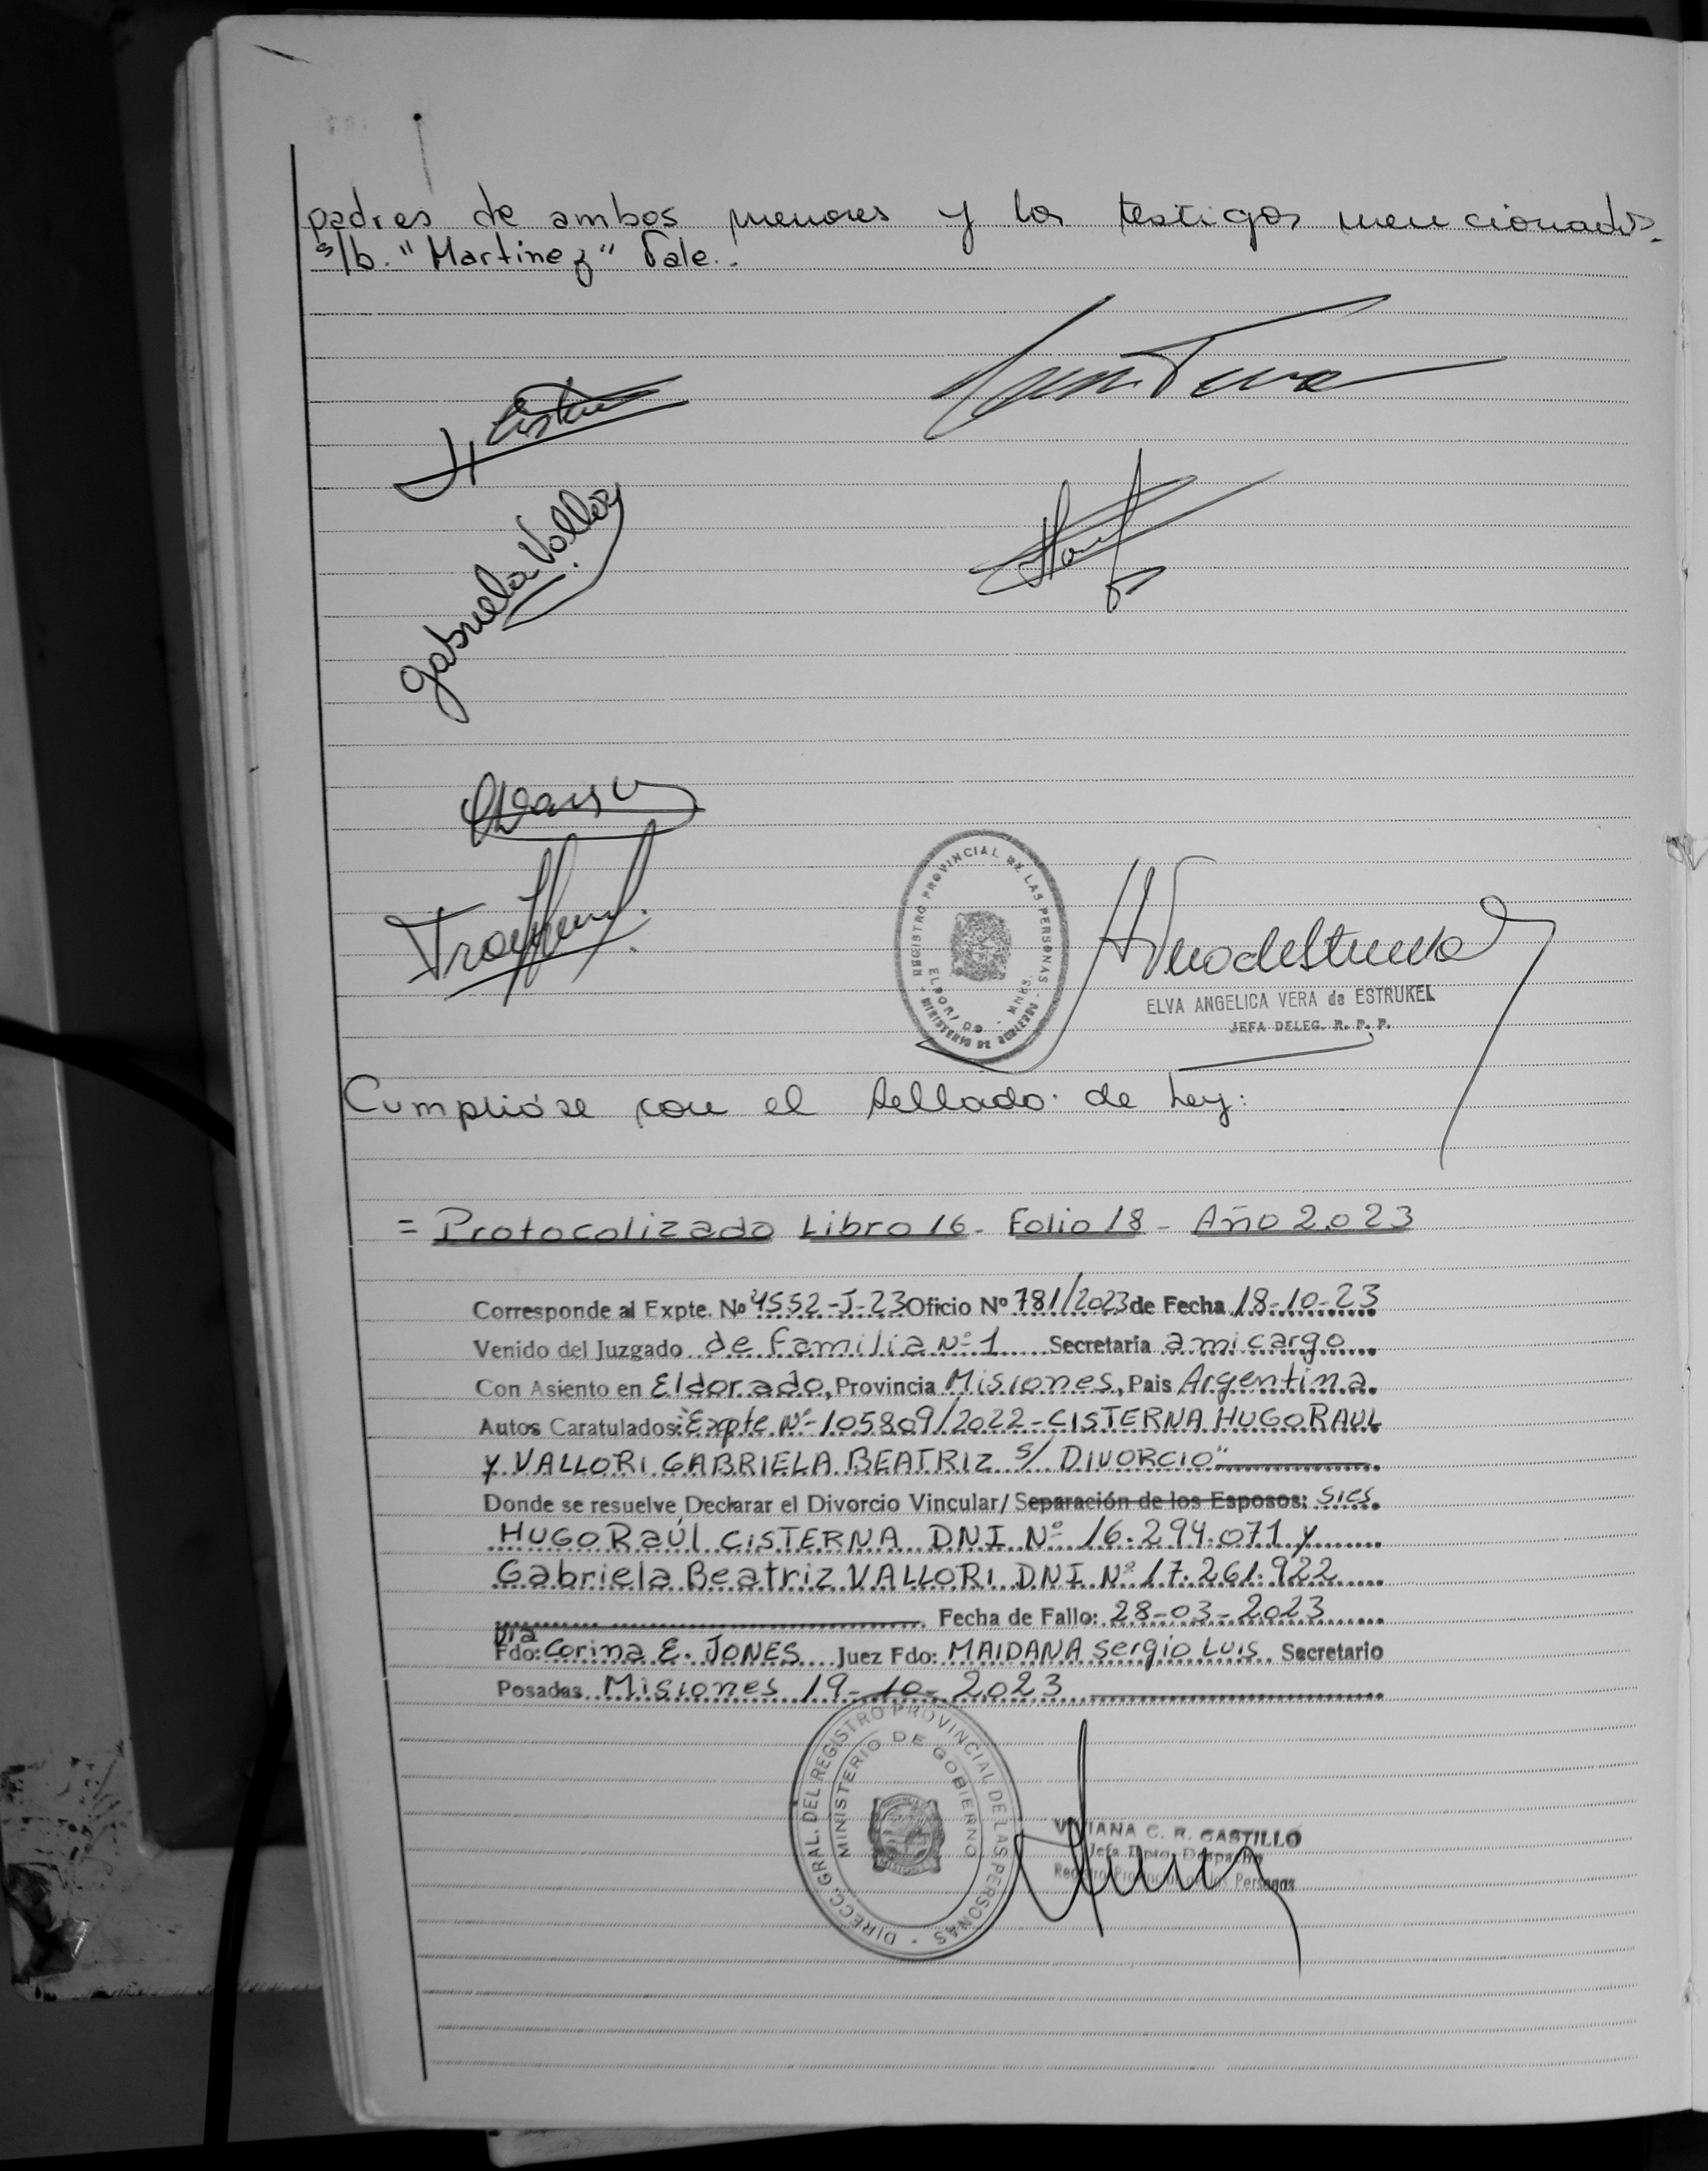 padres de ambos menores y los testigos mencionados.
s/b. "Martinez" Vale.
Gabriela Vallori
REGISTRO PROVINCIAL DE LAS PERSONAS
ELDORADO - MNES.
MINISTERIO DE GOBIERNO
ELVA ANGELICA VERA de ESTRUKEL
JEFA DELEG. R. P. P.
Cumplióse con el sellado de Ley:
= Protocolizado Libro 16 - Folio 18 - Año 2.023
Corresponde al Expte. Nº 4552-J-23 Oficio Nº 781/2023 de Fecha 18-10-23
Venido del Juzgado de Familia Nº 1 Secretaria a mi cargo
Con Asiento en Eldorado, Provincia Misiones, Pais Argentina.
Autos Caratulados: "Expte Nº 105809/2022 - CISTERNA HUGO RAUL
y VALLORI GABRIELA BEATRIZ s/ DIVORCIO"
Donde se resuelve Declarar el Divorcio Vincular/ Separación de los Esposos: Sres
HUGO RAÚL CISTERNA DNI Nº 16.294.071 y
Gabriela Beatriz VALLORI DNI Nº 17.261.922
Fecha de Fallo: 28-03-2023
Dra
Fdo: Corina E. JONES Juez Fdo: MAIDANA Sergio Luis Secretario
Posadas Misiones 19-10-2023
DIRECC. GRAL. DEL REGISTRO PROVINCIAL DE LAS PERSONAS
MINISTERIO DE GOBIERNO
VIVIANA C. R. CASTILLO
Jefa Dpto. Despacho
Registro Provincial de las Personas